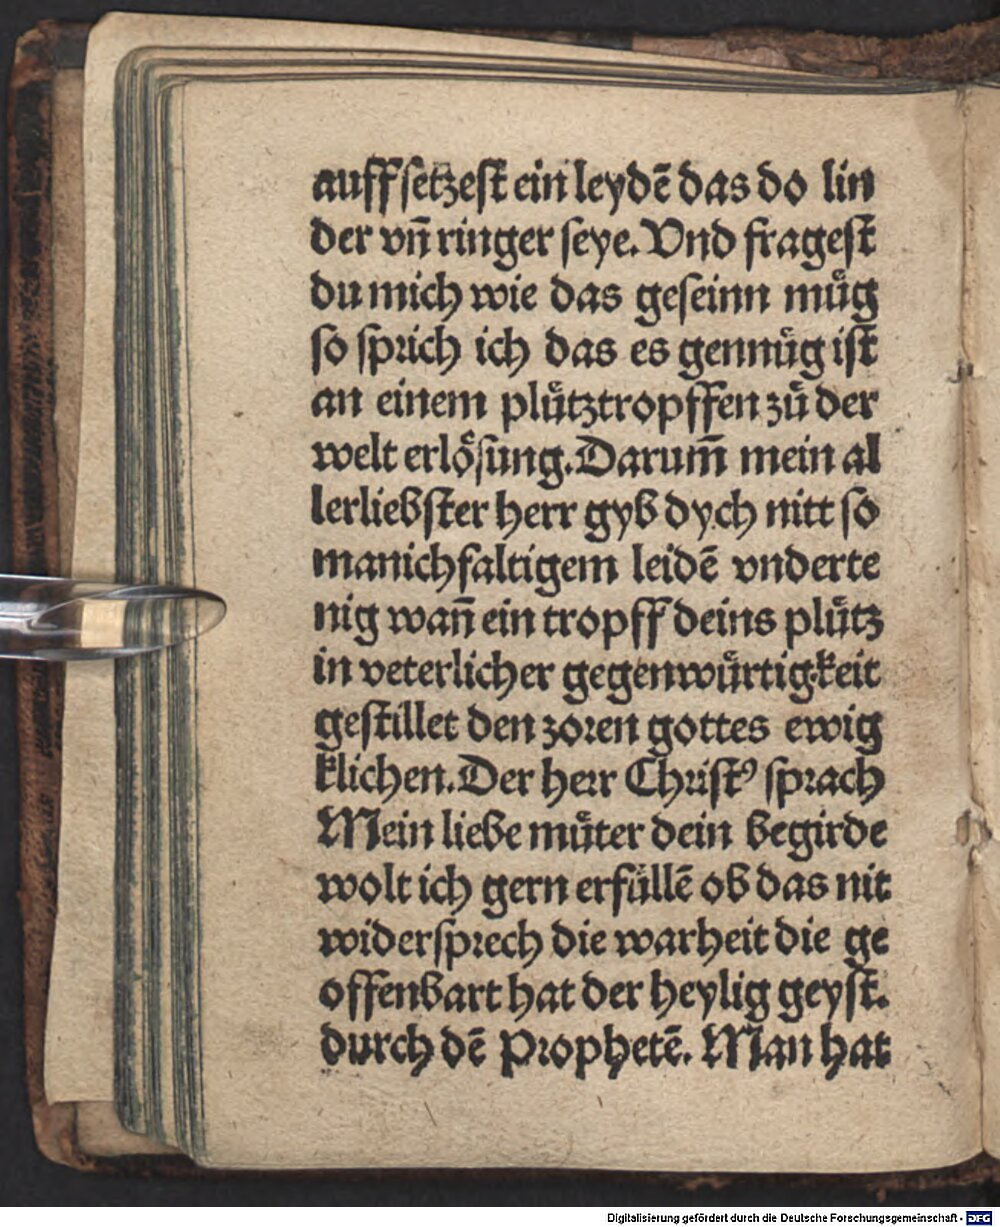 auffſetzeſt ein leydē das do lin
der vn̄ ringer ſeye. Vnd frageſt
du mich wie das geſeinn muͤg
ſo ſprich ich das es gennuͤg iſt
an einem pluͤtztropffen zuͤ der
welt erloͤſung. Darum̄ mein al
lerliebſter herr gyb dych nitt ſo
manichfaltigem leidē vnderte
nig wan̄ ein tropff deins pluͤtz
in veterlicher gegenwuͤrtigkeit
geſtillet den zoꝛen gottes ewig
klichen. Der herr Chriſtꝰ ſpꝛach
Mein liebe muͤter dein begirde
wolt ich gern erfuͤllē ob das nit
widerſpꝛech die warheit die ge
offenbart hat der heylig geyſt.
durch dē Pꝛophetē. Man hat
Digitalisierung gefördert durch die Deutsche Forschungsgemeinschaft - DFG